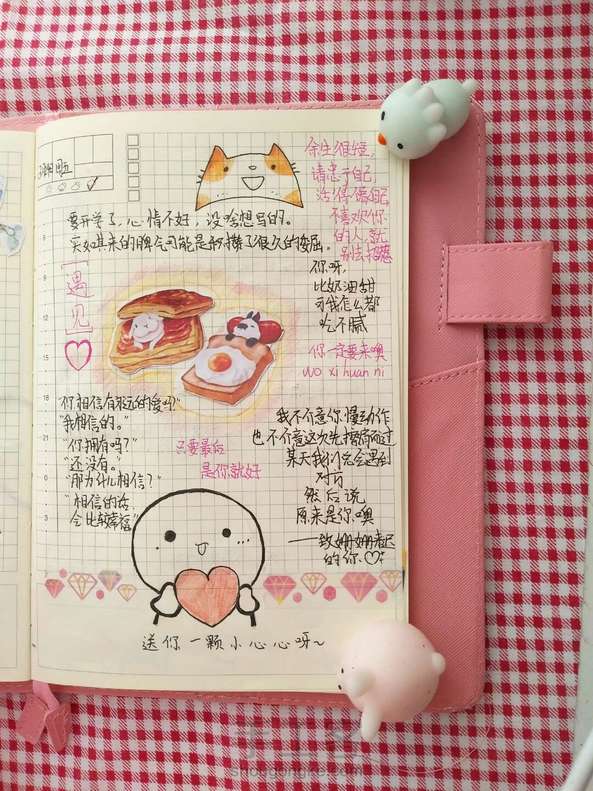 周五
余生很短,
请忠于自己,
活得像自己,
不喜欢你
的人,就
别去招惹
要开学了,心情不好,没啥想写的。
突如其来的脾气可能是积攒了很久的委屈。
遇见
你呀,
比奶油甜
可我怎么都
吃不腻
你一定要来噢
wo xi huan ni
"你相信有永远的爱吗?"
"我相信的。"
"你拥有吗?"
"还没有。"
"那为什么相信?"
"相信的话,
会比较幸福"
只要最后
是你就好
我不介意你慢动作
也不介意这次先擦肩而过
某天我们总会遇到
对方
然后说
原来是你噢
——致姗姗来迟
的你.
送你一颗小心心呀~
手工客
shougongke.com